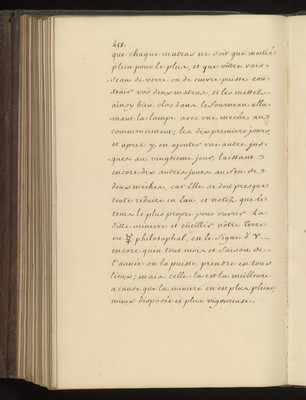 458.
que chaque matras ne soit que moitié
plein pour le plus, et que vôtre vais-
seau de verre ou de cuivre puisse con-
tenir vos deux matras, et les mettez
ainsy bien clos dans le fourneau, allu-
mant la lampe avec une meche au
commencement; les dix premiers jours
et apres y en ajouter une autre jus-
ques au vingtieme jour, laissant
encore dix autres jours au feu de
deux meches, car Elle se doit presque
toute reduire en Eau, et notez que le
tems le plus propre pour ouvrir La
ditte miniere et cüeillir nôtre terre
ou ☿ philosophal, est le signe d'♈.
encore qu'en tous mois et saisons de
l'année on la puisse prendre en tous
lieux; mais celle la est la meilleure
a cause que la miniere en est plus pleine,
mieux disposée et plus vigoureuse.